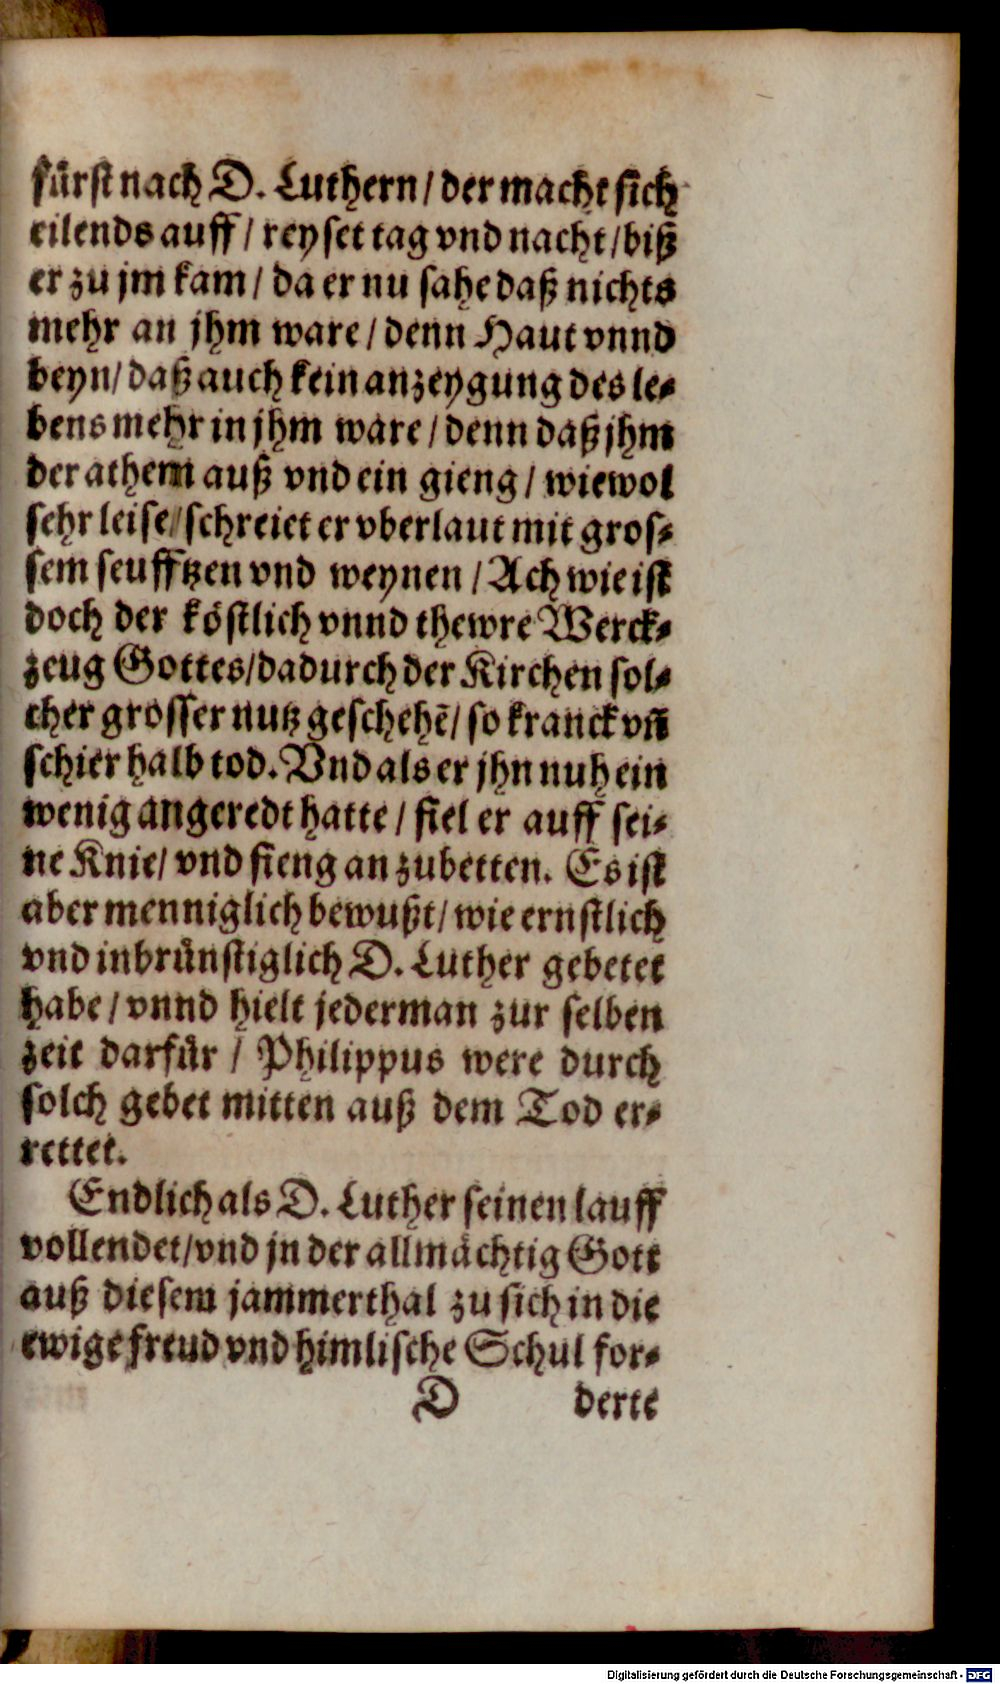 fürst nach D. Luthern / der macht sich
eilends auff / reyset tag vnd nacht / biß
er zu jm kam / da er nu sahe daß nichts
mehr an jhm ware / denn Haut vnnd
beyn / daß auch kein anzeygung des le⸗
bens mehr in jhm ware / denn daß jhm
der athem auß vnd ein gieng / wiewol
sehr leise / schreiet er vberlaut mit gros⸗
sem seufftzen vnd weynen / Ach wie ist
doch der köstlich vnnd thewre Werck⸗
zeug Gottes / dadurch der Kirchen sol⸗
cher grosser nutz geschehẽ / so kranck vñ
schier halb tod. Vnd als er jhn nuh ein
wenig angeredt hatte / fiel er auff sei⸗
ne Knie / vnd fieng an zubetten. Es ist
aber menniglich bewußt / wie ernstlich
vnd inbrünstiglich D. Luther gebetet
habe / vnnd hielt jederman zur selben
zeit darfür / Philippus were durch
solch gebet mitten auß dem Tod er⸗
rettet.
Endlich als D. Luther seinen lauff
vollendet / vnd jn der allmächtig Gott
auß diesem jammerthal zu sich in die
ewige freud vnd himlische Schul for⸗
D derte
Digitalisierung gefördert durch die Deutsche Forschungsgemeinschaft - DFG